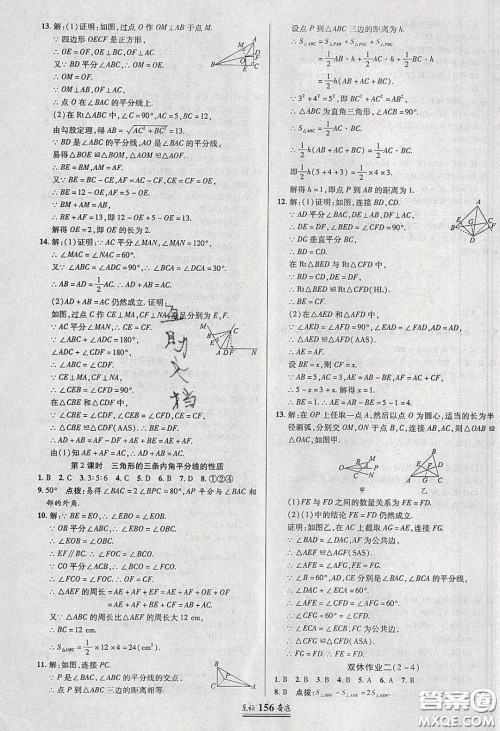 13. 解:(1)证明:如图,过点 O 作 OM⊥AB 于点 M.
∵ 四边形 OECF 是正方形,
∴ OE=OF,OE⊥BC,OF⊥AC.
又∵ BD 平分∠ABC,∴ OM=OE.
∴ OM=OF.
又∵ OM⊥AB,OF⊥AC,
∴ 点 O 在∠BAC 的平分线上.
(2)在 Rt△ABC 中,∠C=90°,AC=5,BC=12,
由勾股定理,得 AB=√AC²+BC²=13.
∵ BD 是∠ABC 的平分线,AO 是∠BAC 的平分线,
易得△BOM≌△BOE,△AOM≌△AOF.
∴ BE=BM,AM=AF.
又∵ BE=BC-CE,AF=AC-CF,CE=CF=OE,
∴ BE=12-OE,AF=5-OE.
∵ BM+AM=AB,
∴ BE+AF=13,即 12-OE+5-OE=13.
解得 OE=2,即 OE 的长为 2.
14. 解:(1)证明:∵ AC 平分∠MAN,∠MAN=120°,
∴ ∠MAC=∠NAC=60°.
又∵ ∠ABC=∠ADC=90°,
∴ AB=AD=1/2AC. ∴ AD+AB=AC.
(2)AD+AB=AC 仍然成立. 证明:
如图,过点 C 作 CE⊥MA,CF⊥NA,垂足分别为 E,F.
∵ AC 平分∠MAN,∴ CE=CF.
∵ ∠ABC+∠ADC=180°,
∠ADC+∠CDF=180°,
∴ ∠ABC=∠CDF.
∵ CE⊥MA,CF⊥NA,
∴ ∠CEB=∠CFD=90°.
在△CBE 和△CDF 中,
∵ ∠CBE=∠CDF,∠CEB=∠CFD,CE=CF,
∴ △CBE≌△CDF(AAS). ∴ BE=DF.
∴ AD+AB=AF-DF+AE+BE=AF+AE.
由(1)知 AE+AF=AC,∴ AD+AB=AC.
第 2 课时 三角形的三条内角平分线的性质
1. B 2. C 3. 3∶5∶6 4. D 5. D 6. B 7. D 8. ①②④
9. 50° 点拨:易得∠BAC=2∠BPC=80°,AP 平分与∠BAC 相
邻的外角.
10. 解:∵ BE=EO,∴ ∠EBO=∠EOB.
∵ OB 平分∠ABC,∴ ∠EBO=∠OBC.
∴ ∠EOB=∠OBC.
∴ EF∥BC. ∴ ∠FOC=∠OCB.
又∵ OC 平分∠ACB,∴ ∠FCO=∠OCB.
∴ ∠FCO=∠FOC. ∴ OF=FC.
∴ △AEF 的周长=AE+AF+EF=AE+AF+OE+OF
=AE+AF+BE+CF=AB+AC.
又∵ △ABC 的周长比△AEF 的周长大 12 cm,
∴ BC=12 cm.
∴ S△OBC=1/2×12×4=24(cm²).
11. 解:如图,连接 PC.
∵ P 是∠BAC,∠ABC 的平分线的交点,
∴ 点 P 到△ABC 三边的距离相等.
设点 P 到△ABC 三边的距离为 h.
∴ S△ABC=S△PAB+S△PAC+S△PBC
=1/2AB·h+1/2AC·h+1/2BC·h
=1/2h(AB+AC+BC).
∵ 3²+4²=5²,即 BC²+AC²=AB²,
∴ △ABC 为直角三角形,∠C=90°.
∴ S△ABC=1/2BC·AC.
∴ 1/2h(AB+AC+BC)=1/2BC·AC,
即 1/2h(5+4+3)=1/2×4×3.
解得 h=1,即点 P 到 AB 的距离为 1.
12. 解:(1)证明:如图,连接 BD,CD.
∵ AD 平分∠BAC,DE⊥AB,DF⊥AC,
∴ DE=DF,∠BED=∠CFD=90°.
∵ DG 垂直平分 BC,
∴ BD=CD.
在 Rt△BED 与 Rt△CFD 中,
∵ BD=CD,DE=DF,
∴ Rt△BED≌Rt△CFD(HL).
∴ BE=CF.
(2)在△AED 和△AFD 中,
∵ ∠AED=∠AFD=90°,∠EAD=∠FAD,AD=AD,
∴ △AED≌△AFD(AAS).
∴ AE=AF.
设 BE=x,则 CF=x.
∵ AB=5,AC=3,AE=AB-BE,AF=AC+CF,
∴ 5-x=3+x. 解得 x=1.
∴ BE=1,AE=AB-BE=5-1=4.
13. 解:在 OP 上任取一点 A,然后以点 O 为圆心,适当的长为半
∴ △AOB≌△AOC,如图甲.
甲 乙
(1)FE 与 FD 之间的数量关系为 FE=FD.
(2)(1)中的结论 FE=FD 仍然成立.
证明:如图乙,在 AC 上截取 AG=AE,连接 FG.
∵ ∠BAD=∠DAC,AF 为公共边,
∴ △AEF≌△AGF(SAS).
∴ ∠AFE=∠AFG,FE=FG.
∵ ∠B=60°,AD,CE 分别是∠BAC,∠BCA 的平分线,
∴ ∠AFE=∠CFD=∠AFG=60°.
∴ ∠CFG=60°.
∵ ∠BCE=∠ACE,CF 为公共边,
∴ △CFG≌△CFD(ASA).
∴ FG=FD. ∴ FE=FD.
双休作业二(2~4)
1. B 2. D 3. B 4. A 5. A 6. A 7. B
8. B 点拨:
见证 156 奇迹
答案圈
MXQE.COM